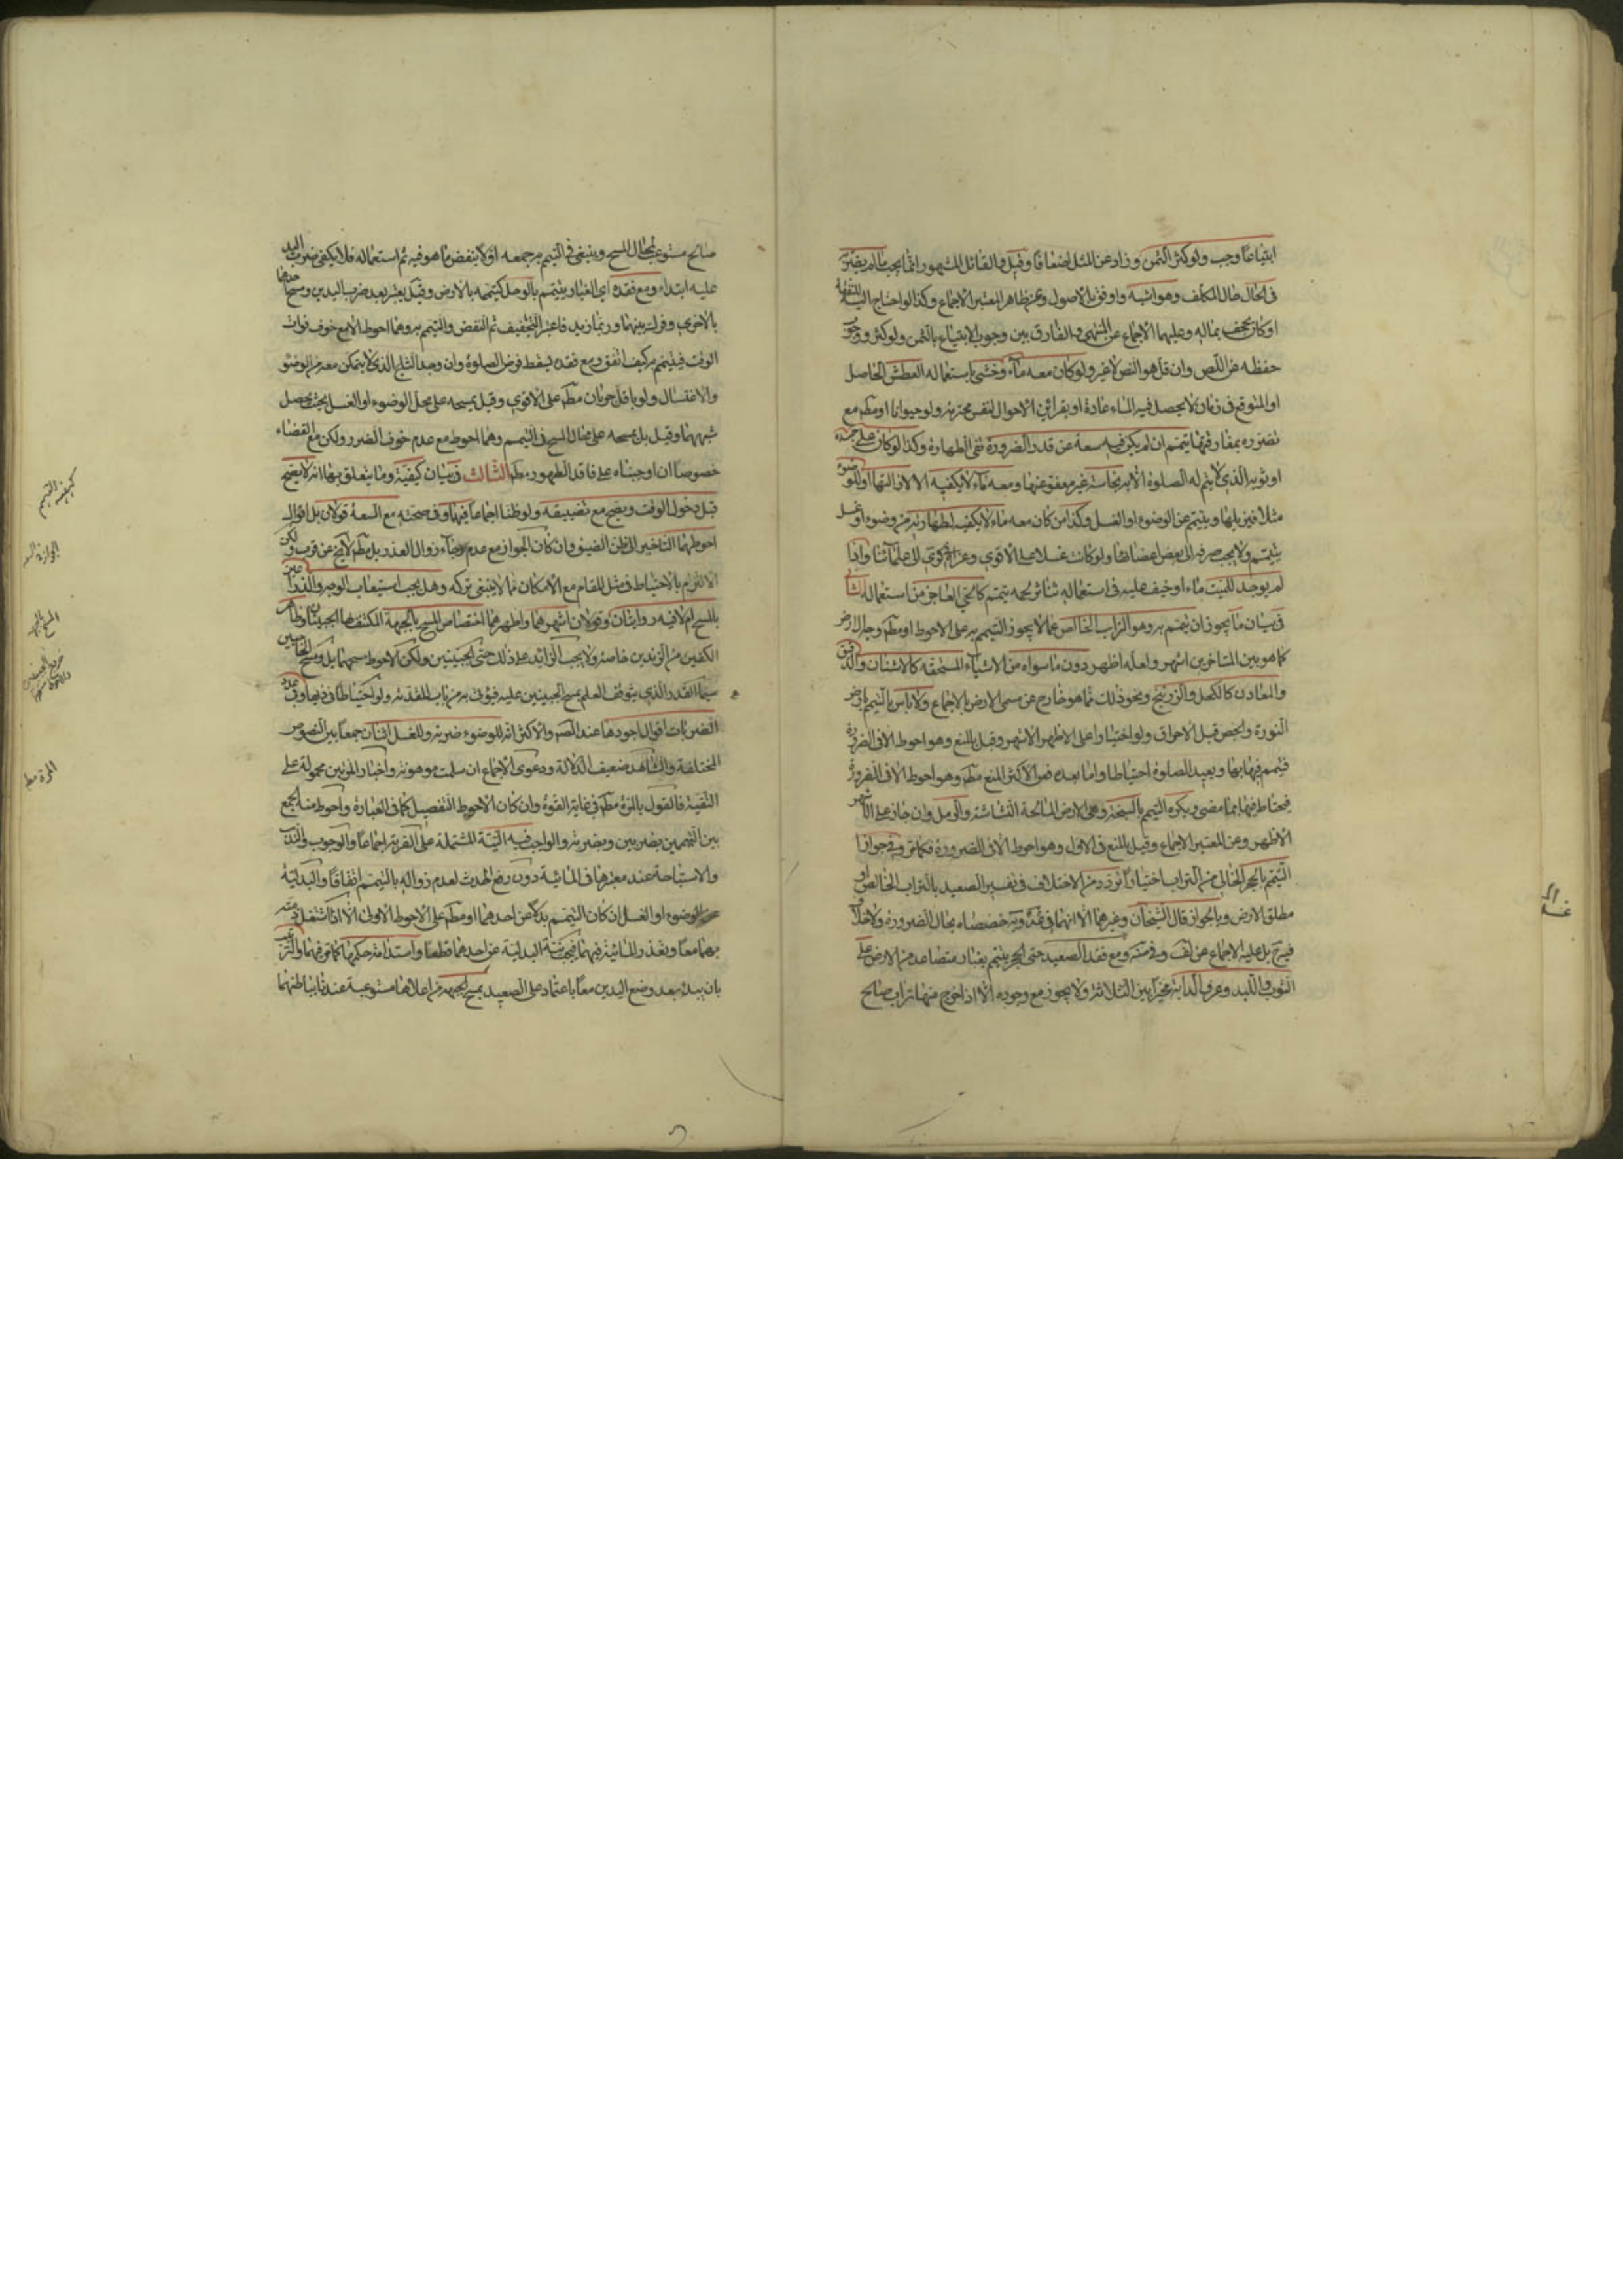 ابتياعا وجب ولو كثر الثمن وزاد عن المثل اضعافا وقيل والقائل المشهور انما يجب ما لم يضر به
في الحال حال المكلف وهو اشبه واوفق بالاصول وعن ظاهر المعتبر الاجماع وكذا لو احتاج اليه للنفقة
او كان يجحف بماله وعليهما الاجماع عن المنتهى والفارق بين وجوب الابتياع بالثمن ولو كثر ووجوب
حفظه عن اللص وان قل هو النص لا غير ولو كان معه ماء وخشي باستعماله العطش الحاصل
او المتوقع في زمان لا يحصل فيه الماء عادة او بقرائن الاحوال لنفس محترمة ولو حيوانا او مطم مع
تضرره بمفارقتها يتمم ان لم يكن فيه سعة عن قدر الضرورة نفى الطهارة وكذا لو كان على جسده
او ثوبه الذي لا يتم له الصلوة الا به نجاسة غير معفو عنها ومعه ماء لا يكفيه الا لازالتها او للوضوء
مثلا فيزيلها ويتيمم عن الوضوء او الغسل وكذا من كان معه ماء لا يكفيه لطهارته من وضوء او غسل
يتيمم ولا يجب صرفه الى بعض اعضائها ولو كانت غسلا على الاقوى وعزاه في كرى الى علمائنا واذا
لم يوجد للميت ماء او خيف عليه في استعماله تناثر لحمه يتمم كالحي العاجز من استعماله الثاني
في بيان ما يجوز ان يتيمم به وهو التراب الخالص عما لا يجوز التيمم به على الاحوط او مطم وجه الارض
كما هو بين المتاخرين اشهر ولعله اظهر دون ما سواه من الاشياء المنسحقة كالاشنان والدقيق
والمعادن كالكحل والزرنيخ ونحو ذلك مما هو خارج عن مسمى الارض بالاجماع ولا باس بالتيمم بارض
النورة والجص قبل الاحراق ولو اختيارا على الاظهر الاشهر وقيل بالمنع وهو احوط الا في الضرورة
فيتمم فيها بها ويعيد الصلوة احتياطا واما بعده فعن الاكثر المنع مطم وهو احوط الا في الضرورة
فيحتاط فيها بما مضى ويكره التيمم بالسبخة وهي الارض المالحة النشاشة والرمل وان جاز على الاشهر
الاظهر وعن المعتبر الاجماع وقيل بالمنع في الاول وهو احوط الا في الضرورة فكما مر وفي جواز
التيمم بالحجر الخالي من التراب اختيارا تردد من الاختلاف في تفسير الصعيد بالتراب الخالص او
مطلق الارض وبالجواز قال الشيخان وغيرهما الا انهما في عة وية خصصاه بحال الضرورة ولا خلاف
فيه ح بل عليه الاجماع عن لف وض مته ومع فقد الصعيد حتى الحجر يتيمم بغبار متصاعد من الارض على
الثوب واللبد وعرف الدابة مخيرا بين الثلاثة ولا يجوز مع وجوده الا اذا خرج منها تراب صالح
غسله
صالح مستوعب لمحال المسح وينبغي في التيمم به جمعه اولا بنفض ما هو فيه ثم استعماله فلا يكفي ضرب اليد
عليه ابتداء ومع فقده اي الغبار يتيمم بالوحل كتيممه بالارض وقيل يعتبر بعد ضرب اليدين ومسح احدهما
بالاخرى وفرك بينهما وربما زيد فاعتبر التجفيف ثم النفض والتيمم به وهما احوط الا مع خوف فوات
الوقت فيتيمم به كيف اتفق ومع فقده يسقط فرض الصلوة وان وجد الثلج الذي لا يتمكن معه من الوضوء
والاغتسال ولو باقل جريان مطم على الاقوى وقيل يمسحه على محل الوضوء او الغسل بحيث يحصل
شبههما وقيل بل يمسحه على محال المسح في التيمم وهما احوط مع عدم خوف الضرر ولكن مع القضاء
خصوصا ان اوجبناه على فاقد الطهور مطم الثالث في بيان كيفيته وما يتعلق بها انه لا يصح
قبل دخول الوقت ويصح مع تضييقه ولو ظنا اجماعا فيهما وفي صحته مع السعة قولان بل اقوال
احوطهما التاخير الى ظن الضيق وان كان الجواز مع عدم رجاء زوال العذر بل مطم لا يخ عن قرب ولكن
الالتزام بالاحتياط في مثل المقام مع الامكان مما لا ينبغي تركه وهل يجب استيعاب الوجه والذراعين
بالمسح ام لا فيه روايتان وقولان اشهرهما واظهرهما اختصاص المسح بالجبهة المكتنفها الجبينان وظاهر
الكفين من الزندين خاصة ولا يجب الزائد على ذلك حتى الجبينين ولكن الاحوط مسحهما بل ومسح الحاجبين
سيما القدر الذي يتوقف العلم بمسح الجبينين عليه فيؤتى به من باب المقدمة ولو احتياطا في فيها وفي عدد
الضربات اقوال اجودها عند المصه والاكثر انه للوضوء ضربة وللغسل اثنتان جمعا بين النصوص
المختلفة والشاهد ضعيف الدلالة ودعوى الاجماع ان سلمت موهونة واخبار المرتين محمولة على
التقية فالقول بالمرة مطم في غاية القوة وان كان الاحوط التفصيل كما في العبارة واحوط منه الجمع
بين التيممين بضربتين وبضربة والواجب فيه النية المشتملة على القربة اجماعا والوجوب والندب
والاستباحة عند معتبرها في المائية دون رفع الحدث لعدم زواله بالتيمم اتفاقا والبدلية
عن الوضوء او الغسل ان كان التيمم بدلا عن احدهما او مطم على الاحوط الاولى الا اذا اشتغل ذمته
بهما معا وتعذر المائية فيهما فيجب نية البدلية عن احدهما قطعا واستدامة حكمها كما مر فيهما والترتيب
بان يبدء بعد وضع اليدين معا باعتماد على الصعيد بمسح الجبهة من اعلاها مستوعبة عندنا بباطنهما
كيفية التيمم